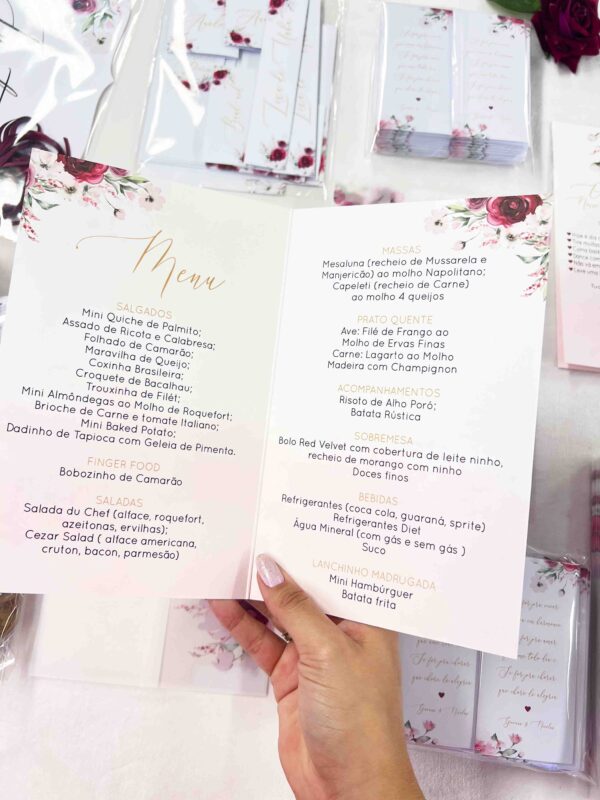 Menu
SALGADOS
Mini Quiche de Palmito;
Assado de Ricota e Calabresa;
Folhado de Camarão;
Maravilha de Queijo;
Coxinha Brasileira;
Croquete de Bacalhau;
Trouxinha de Filét;
Mini Almôndegas ao Molho de Roquefort;
Brioche de Carne e tomate Italiano;
Mini Baked Potato;
Dadinho de Tapioca com Geleia de Pimenta.
FINGER FOOD
Bobozinho de Camarão
SALADAS
Salada du Chef (alface, roquefort,
azeitonas, ervilhas);
Cezar Salad ( alface americana,
cruton, bacon, parmesão)
MASSAS
Mesaluna (recheio de Mussarela e
Manjericão) ao molho Napolitano;
Capeleti (recheio de Carne)
ao molho 4 queijos
PRATO QUENTE
Ave: Filé de Frango ao
Molho de Ervas Finas
Carne: Lagarto ao Molho
Madeira com Champignon
ACOMPANHAMENTOS
Risoto de Alho Poró;
Batata Rústica
SOBREMESA
Bolo Red Velvet com cobertura de leite ninho,
recheio de morango com ninho
Doces finos
BEBIDAS
Refrigerantes (coca cola, guaraná, sprite)
Refrigerantes Diet
Água Mineral (com gás e sem gás )
Suco
LANCHINHO MADRUGADA
Mini Hambúrguer
Batata frita